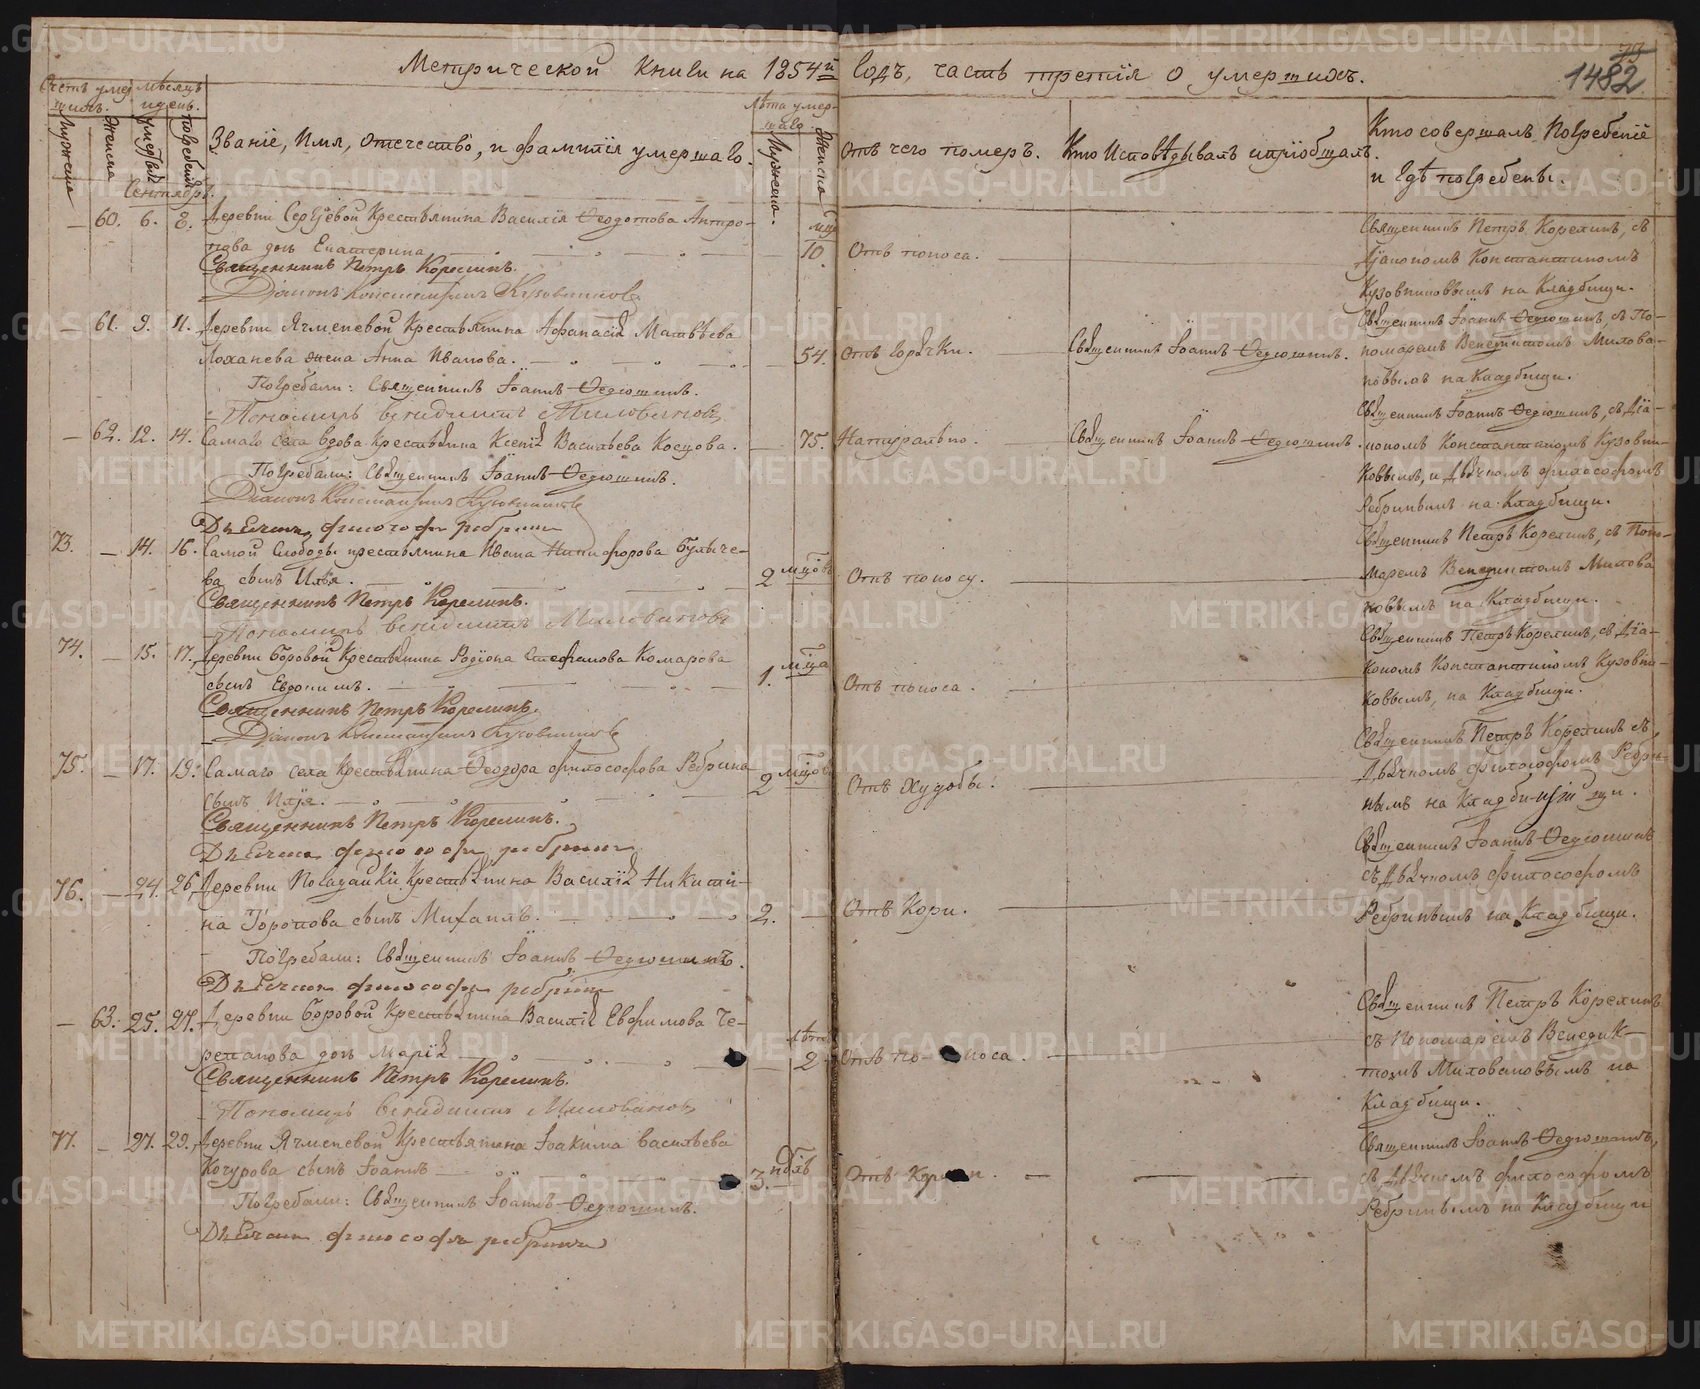 Метрической Книги на 1854й Годъ, часть третія о умершихъ.
1482
Счетъ умершихъ.
Мѣсяцъ и день.
Мужеска
Женска
умертвія
погребенія
Званіе, Имя, Отечество, и фамилія умершаго.
Лѣта умершаго
Мужеска.
Женска
Отъ чего померъ.
Кто Исповѣдывалъ и пріобщалъ.
Кто совершалъ Погребеніе
и гдѣ погребены.
Сентябрь.
— 60. 6. 8. Деревни Сергѣевой Крестьянина Василія Ѳедотова Антро-
пова дочь Екатерина 10 Отъ поноса.
Священникъ Петръ Корелинъ.
Діаконъ Константинъ Кузовниковъ
Священникъ Петръ Корелинъ, съ
Діакономъ Константиномъ
Кузовниковымъ на Кладбищи.
— 61. 9. 11. Деревни Ячменевой Крестьянина Афанасія Матвѣева
Лоханева жена Анна Иванова. 54. Отъ горячки. Священникъ Іоаннъ Ѳедюшинъ.
Погребали: Священникъ Іоаннъ Ѳедюшинъ.
Пономарь Венидиктъ Миловановъ
Священникъ Іоаннъ Ѳедюшинъ, съ По-
номаремъ Венедиктомъ Милова-
новымъ на Кладбищи.
— 62. 12. 14. Самаго Села вдова Крестьянина Ксенія Васильева Косцова. 75. Натурально. Священникъ Іоаннъ Ѳедюшинъ.
Погребали: Священникъ Іоаннъ Ѳедюшинъ.
Діаконъ Константинъ Кузовниковъ
Дьячекъ философъ ребринъ
Священникъ Іоаннъ Ѳедюшинъ, съ Діа-
кономъ Константиномъ Кузовни-
ковымъ, и Дьячкомъ философомъ
Ребринымъ на Кладбищи.
73. — 14. 16. Самой Слободы крестьянина Ивана Никифорова Булыче-
ва сынъ Илья. 2 мцовъ Отъ поносу.
Священникъ Петръ Корелинъ.
Пономарь Венидиктъ Миловановъ
Священникъ Петръ Корелинъ, съ Поно-
маремъ Венедиктомъ Милова
новымъ на Кладбищи.
74. — 15. 17. Деревни Боровой Крестьянина Родіона Стефанова Комарова
сынъ Евфимъ. 1. мца Отъ поноса.
Священникъ Петръ Корелинъ.
Діаконъ Константинъ Кузовниковъ
Священникъ Петръ Корелинъ, съ Діа-
кономъ Константиномъ Кузовни-
ковымъ, на Кладбищи.
75. — 17. 19. Самаго села Крестьянина Ѳеодора философова Ребрина
сынъ Илія. 2 мцовъ Отъ Худобы.
Священникъ Петръ Корелинъ.
Дьячекъ философъ ребринъ
Священникъ Петръ Корелинъ съ
Дьячкомъ философомъ Ребри-
нымъ на Кладби- щи.
76. — 24. 26. Деревни Погадайки Крестьянина Василія Никити-
на Горонова сынъ Михаилъ. 2. Отъ Кори.
Погребали: Священникъ Іоаннъ Ѳедюшинъ.
Дьячекъ философъ ребринъ
Священникъ Іоаннъ Ѳедюшинъ
съ Дьячкомъ философомъ
Ребринымъ на Кладбищи.
— 63. 25. 27. Деревни Боровой Крестьянина Василія Евфимова Че-
репанова дочь Марія 2 Отъ по- носа.
Священникъ Петръ Корелинъ.
Пономарь Венидиктъ Миловановъ
Священникъ Петръ Корелинъ
съ Пономаремъ Венедик-
томъ Миловановымъ на
Кладбищи.
77. — 27. 29. Деревни Ячменевой Крестьянина Іоакима Васильева
Кочурова сынъ Іоаннъ 3. Отъ Кори.
Погребали: Священникъ Іоаннъ Ѳедюшинъ.
Дьячекъ философъ ребринъ
Священникъ Іоаннъ Ѳедюшинъ,
съ Дьячкомъ философомъ
Ребринымъ на Кладбищи
METRIKI.GASO-URAL.RU